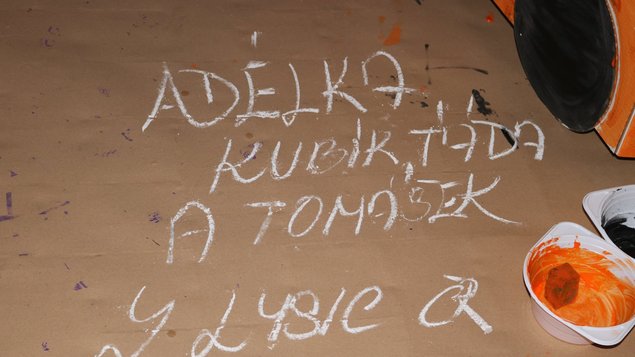 ADÉLKA
KUBÍK TÁDA
A TOMÁŠEK
Z LYSIC ČR